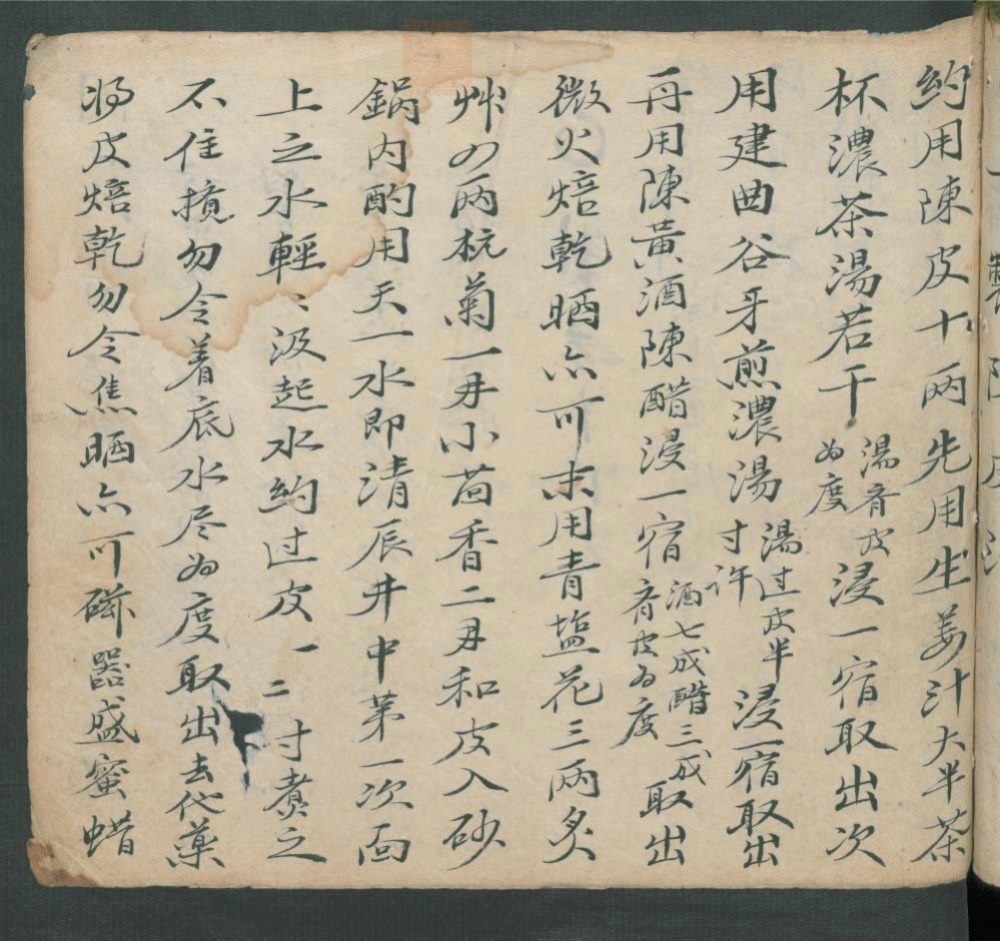 約用陳皮十两先用生姜汁大半茶
杯濃茶湯若干湯斉皮為度浸一宿取出次
用建曲谷牙煎濃湯湯过皮半寸許浸一宿取出
再用陳黃酒陳醋浸一宿酒七成醋三成斉皮為度取出
微火焙乾晒亦可末用青塩花三两炙
艸四两杭菊一両小茴香二両和皮入砂
鍋内酌用天一水即清辰井中第一次面
上之水輕〻汲起水約过皮一二寸煑之
不住攪勿令着底水尽為度取出去代藥
将皮焙乾勿令焦晒亦可磁器盛蜜蜡